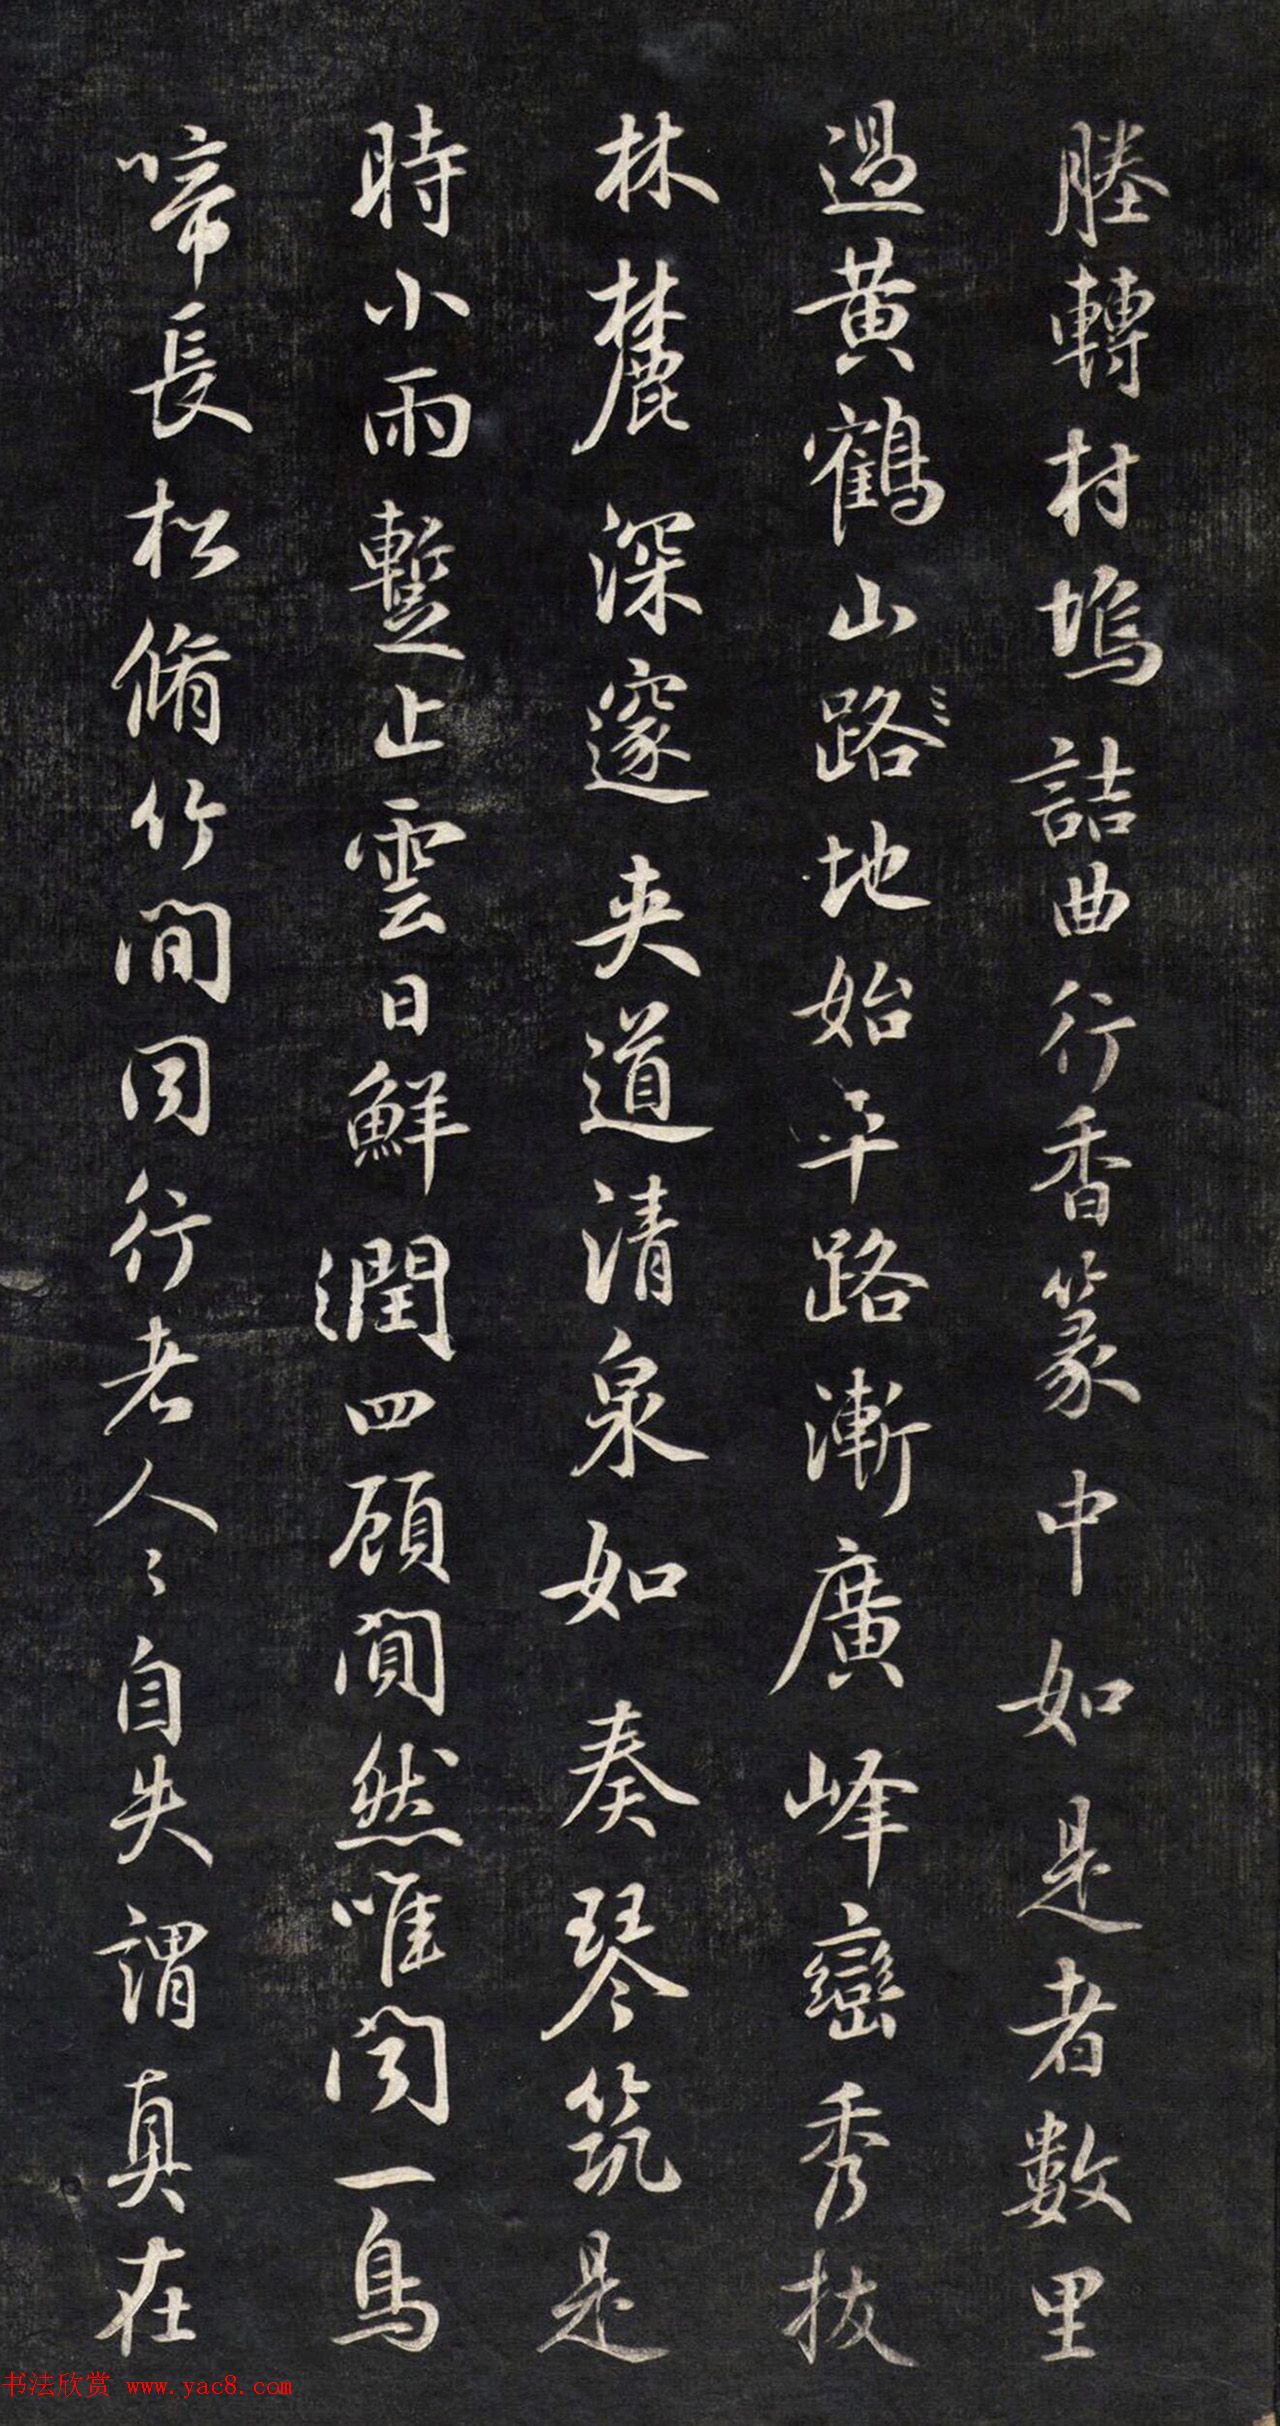 塍轉村塢詰曲行香篆中如是者數里
過黃鶴山路地始平路漸廣峰巒秀拔
林麓深邃夾道清泉如奏琴筑是
時小雨暫止雲日鮮潤四顧闃然唯聞一鳥
啼長松脩竹間同行老人〻自失謂真在
书法欣赏 www.yac8.com